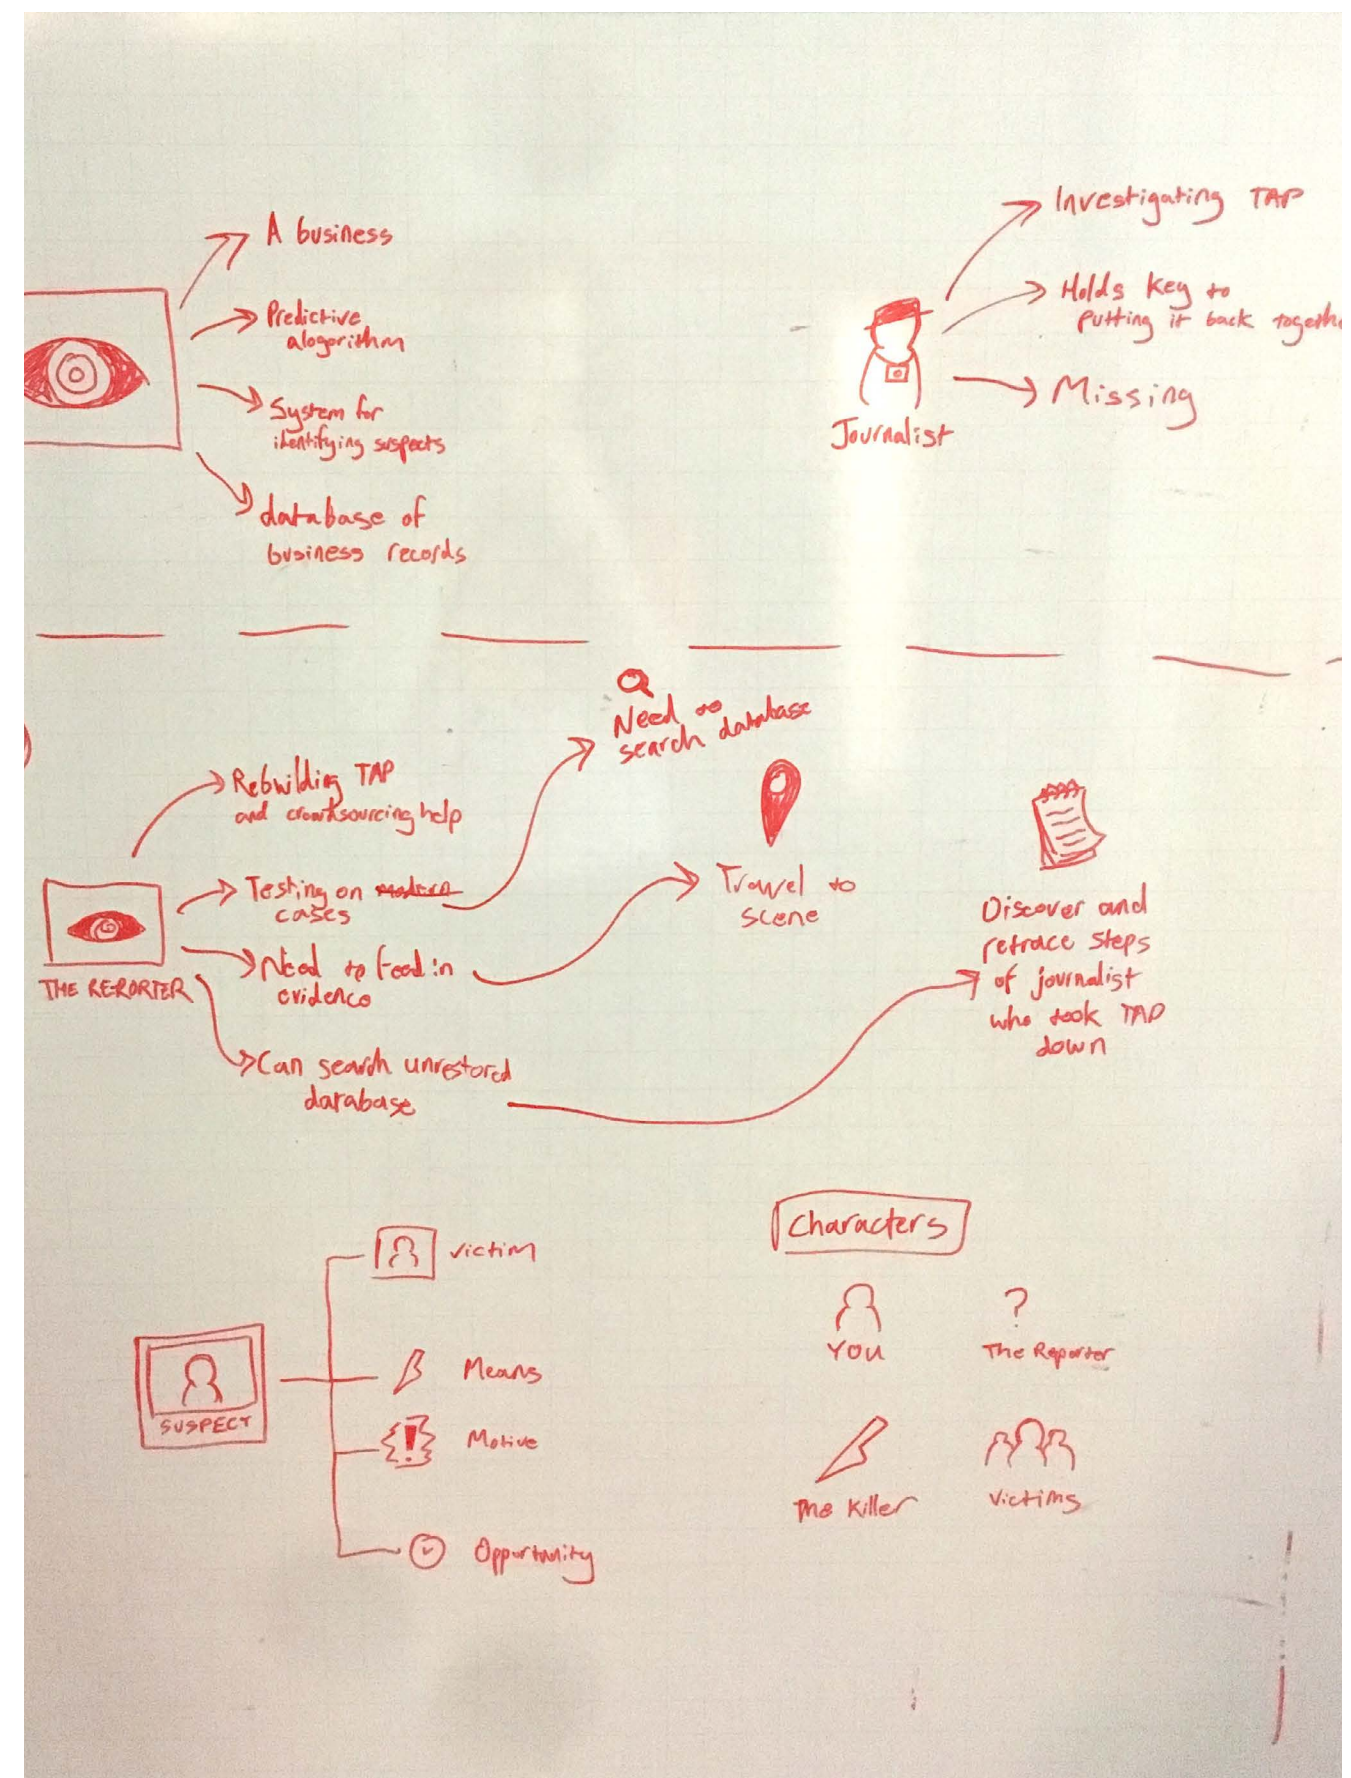 A business
Predictive
alogorithm
System for
identifying suspects
database of
business records
Investigating TAP
Holds key to
putting it back togeth
Missing
Journalist
Need to
search database
Rebuilding TAP
and crowdsourcing help
Testing on modern
cases
Need to feed in
evidence
Can search unrestored
database
THE REPORTER
Travel to
scene
Discover and
retrace steps
of journalist
who took TAP
down
SUSPECT
victim
Means
!
Motive
Opportunity
Characters
YOU
?
The Reporter
The Killer
Victims